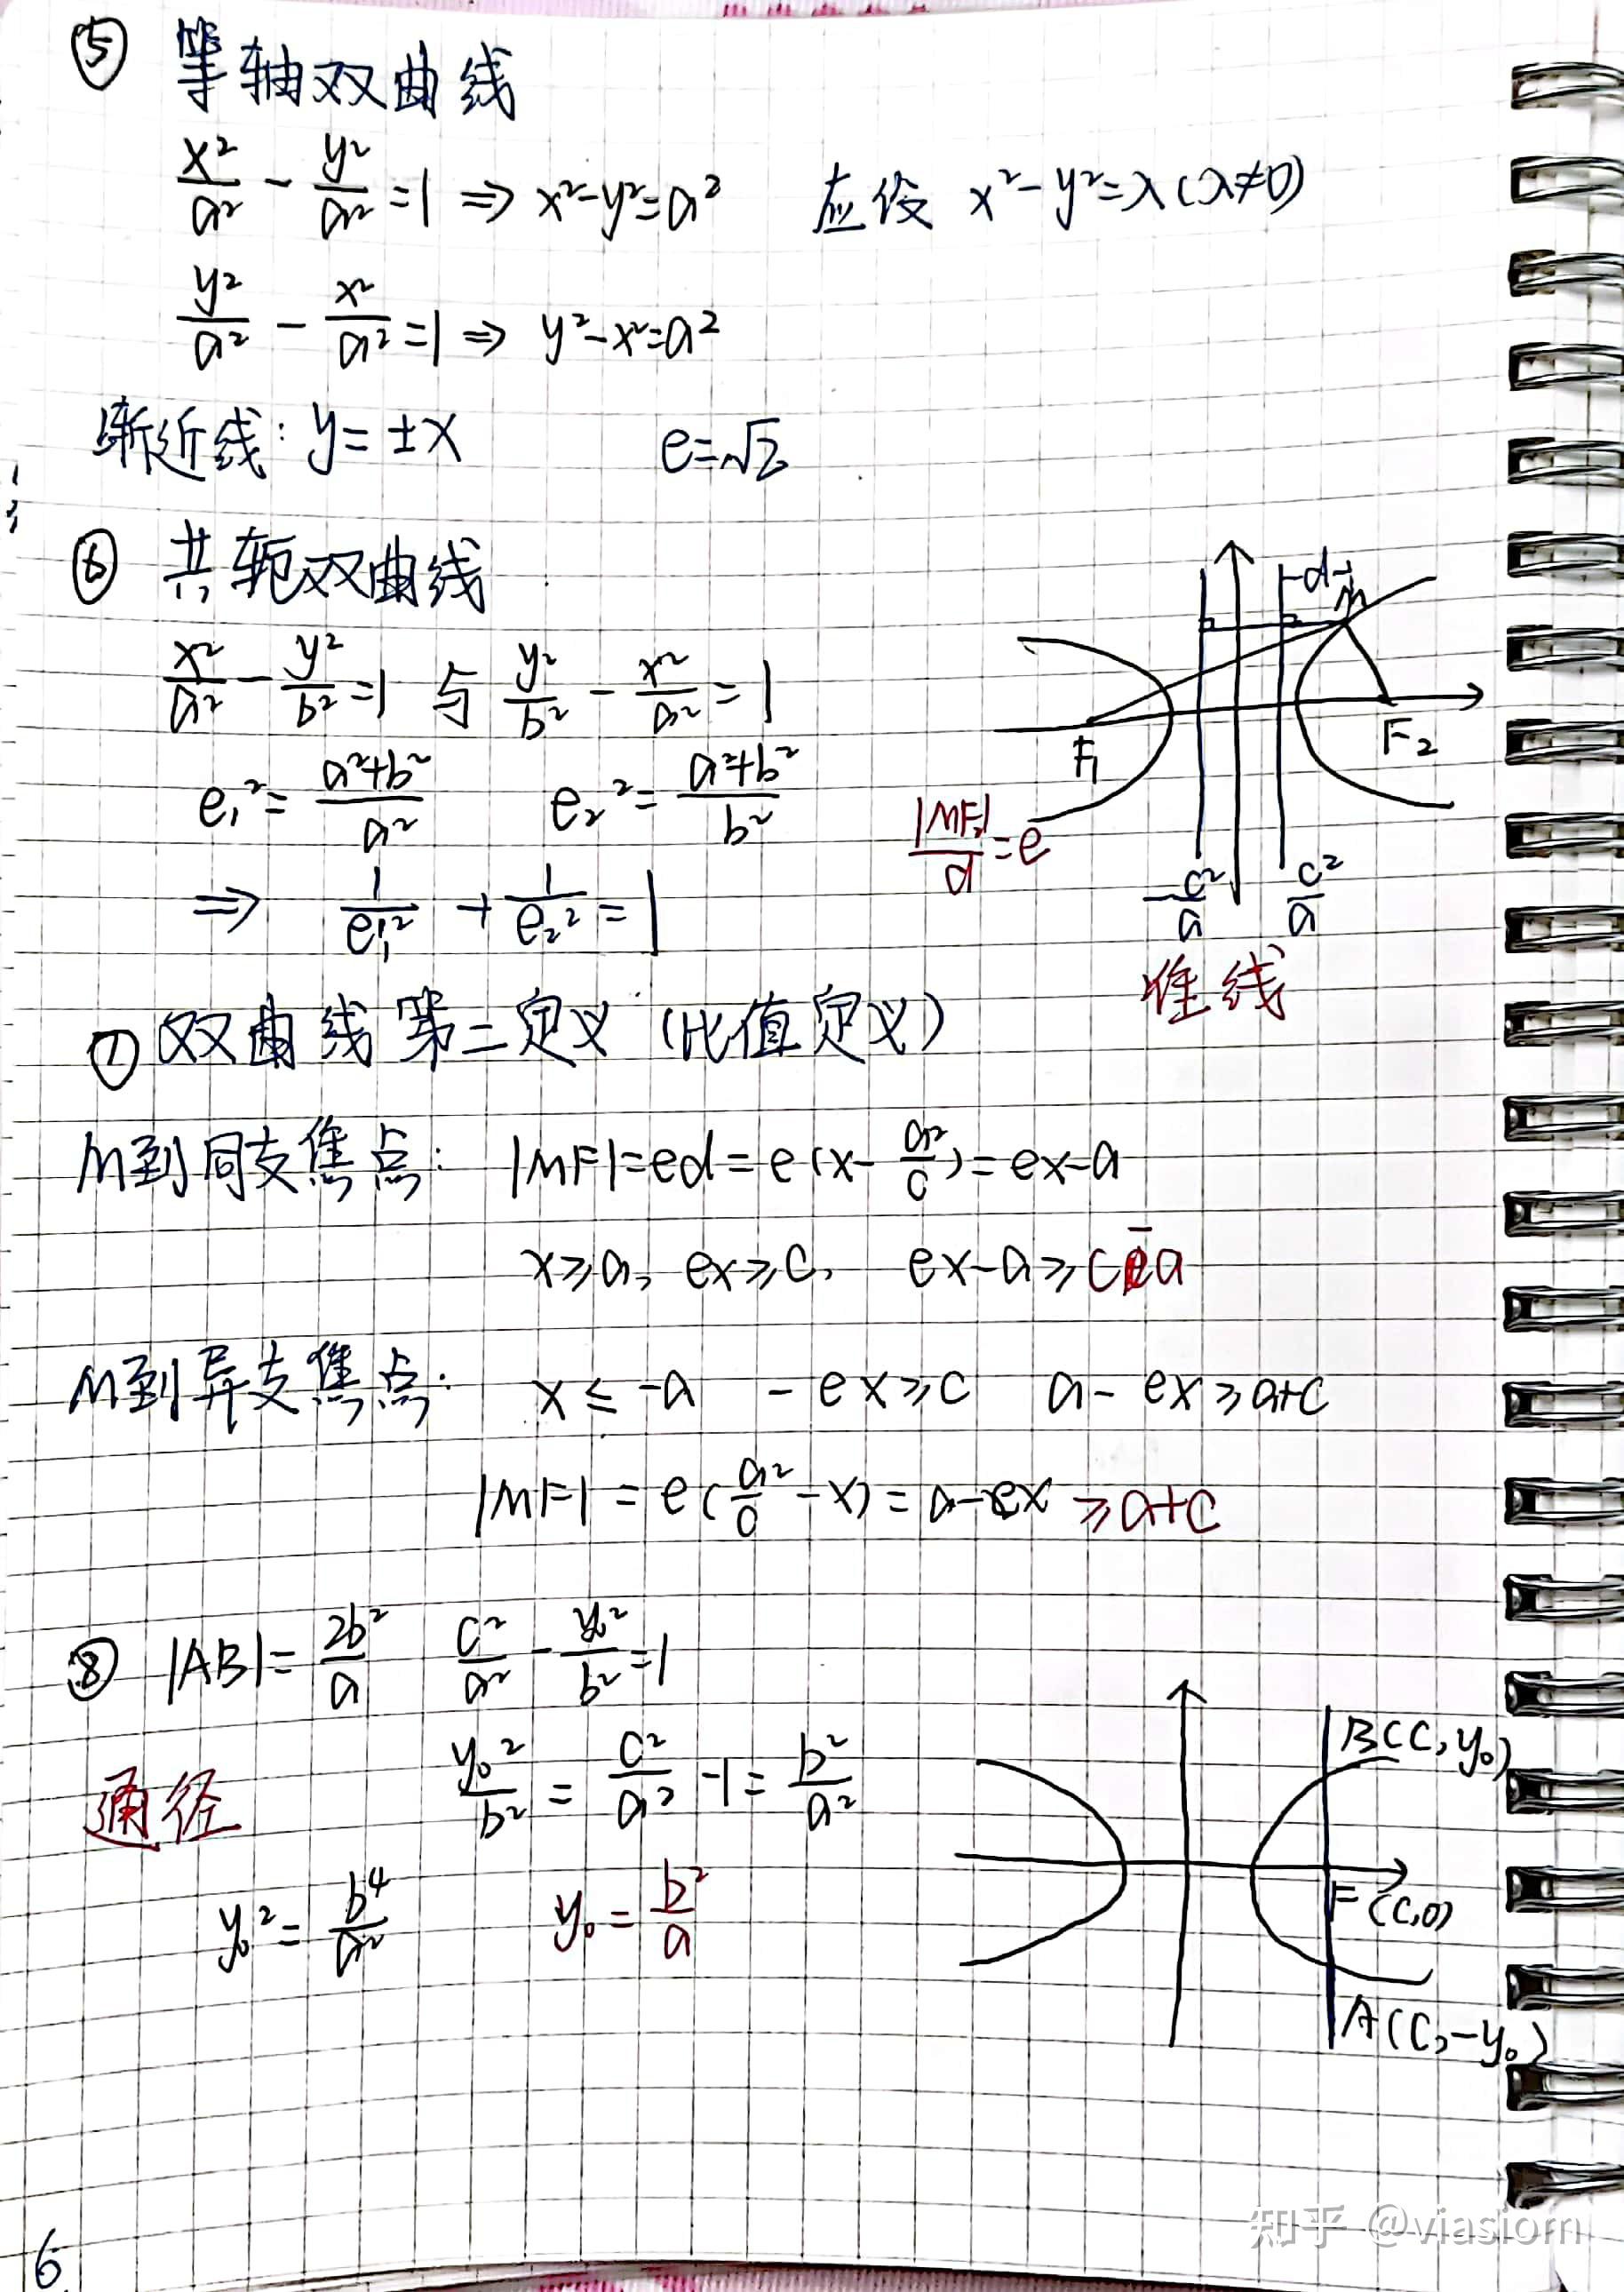 ⑤ 等轴双曲线
x²/a² - y²/a² = 1 ⇒ x²-y²=a² 应设 x²-y²=λ(λ≠0)
y²/a² - x²/a² = 1 ⇒ y²-x²=a²
渐近线: y=±x e=√2
⑥ 共轭双曲线
x²/a² - y²/b² = 1 与 y²/b² - x²/a² = 1
e₁² = (a²+b²)/a² e₂² = (a²+b²)/b²
⇒ 1/e₁² + 1/e₂² = 1
d
M
F₁ F₂
|MF₂|/d = e
-c²/a c²/a
准线
⑦ 双曲线第二定义(比值定义)
M到同支焦点: |MF|=ed=e(x-a²/c)=ex-a
x≥a, ex≥c, ex-a≥c-a
M到异支焦点: x≤-a -ex≥c a-ex≥a+c
|MF| = e(a²/c-x) = a-ex ≥a+c
⑧ |AB|=2b²/a c²/a² - y₀²/b² = 1
通径 y₀²/b² = c²/a² - 1 = b²/a²
y₀² = b⁴/a² y₀ = b²/a
B(c,y₀)
F(c,0)
A(c,-y₀)
6
知乎 @viasiom